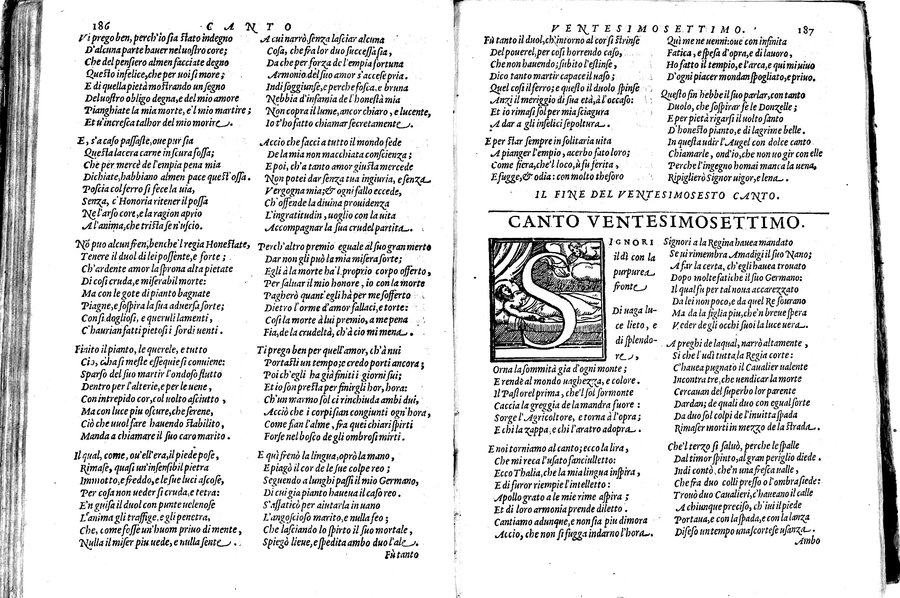 186 CANTO
Vi prego ben, perch'io sia stato indegno
D'alcuna parte hauer nel uostro core;
Che del pensiero almen facciate degno
Questo infelice, che per uoi si more;
E di quella pietà mostrando un segno
Del uostro obligo degna, e del mio amore
Pianghiate la mia morte, e'l mio martire;
Et u'incresca talhor del mio morire.
E, s'a caso passaste, oue pur sia
Questa lacera carne in scura fossa;
Che per mercè de l'empia pena mia
Dichiate, habbiano almen pace quest'ossa.
Poscia col ferro si fece la uia,
Senza, c'Honoria ritener il possa
Ne l'arso core, e la ragion aprio
A l'anima, che trista se n'uscio.
Nō puo alcun fren, benche'l regia Honestate,
Tenere il duol di lei possente, e forte;
Ch'ardente amor la sprona alta pietate
Di così cruda, e miserabil morte:
Ma con le gote di pianto bagnate
Piagne, e sospira la sua aduersa sorte;
Con sì dogliosi, e queruli lamenti,
C'haurian fatti pietosi i sordi uenti.
Finito il pianto, le querele, e tutto
Ciò, ch'a si meste essequie si conuiene:
Sparso del suo martir l'ondoso flutto
Dentro per l'alterie, e per le uene,
Con intrepido cor, col uolto asciutto,
Ma con luce piu oscure, che serene,
Ciò che uuol fare hauendo stabilito,
Manda a chiamare il suo caro marito.
Il qual, come, ou'ell'era, il piede pose,
Rimase, quasi un'insensibil pietra
Immotto, e freddo, e le sue luci ascose,
Per cosa non ueder sì cruda, e tetra:
E'n guisa il duol con punte uelenose
L'anima gli traffige, e gli penetra,
Che, come fosse un'huom priuo di mente,
Nulla il miser piu uede, e nulla sente.
A cui narrò, senza lasciar alcuna
Cosa, che fra lor duo successa sia,
Da che per forza de l'empia fortuna
Armonio del suo amor s'accese pria.
Indi soggiunse, e perche fosca, e bruna
Nebbia d'infamia de l'honestà mia
Non copra il lume, ancor chiaro, e lucente,
Io t'ho fatto chiamar secretamente.
Accio che facci a tutto il mondo fede
De la mia non macchiata conscienza;
E poi, ch'a tanto amor giusta mercede
Non potei dar senza tua ingiuria, e senza
Vergogna mia; & ogni fallo eccede,
Ch'offende la diuina prouidenza
L'ingratitudin, uoglio con la uita
Accompagnar la sua crudel partita.
Perch'altro premio eguale al suo gran merto
Dar non gli può la mia misera sorte;
Egli à la morte ha'l proprio corpo offerto,
Per saluar il mio honore, io con la morte
Pagherò quant'egli hà per me sofferto
Dietro l'orme d'amor fallaci, e torte:
Cosi la morte à lui premio, a me pena
Fia, de la crudeltà, ch'à ciò mi mena.
Ti prego ben per quell'amor, ch'à nui
Portasti un tempo; e credo porti ancora;
Poi ch'egli ha già finiti i giorni sui;
Et io son presta per finirgli hor, hora:
Ch'un marmo sol ci rinchiuda ambi dui,
Acciò che i corpi sian congiunti ogn'hora,
Come fian l'alme, fra quei chiari spirti
Forse nel bosco de gli ombrosi mirti.
E qui frenò la lingua, oprò la mano,
E piagò il cor de le sue colpe reo;
Seguendo a lunghi passi il mio Germano,
Di cui gia pianto haueua il caso reo.
S'affaticò per aiutarla in uano
L'angoscioso marito, e nulla feo;
Che lasciando lo spirto il suo mortale,
Spiegò lieue, e spedita ambo due l'ale.
Fù tanto
VENTESIMOSETTIMO. 187
Fù tanto il duol, ch'intorno al cor si strinse
Del pouerel, per così horrendo caso,
Che non hauendo; subito l'estinse,
Dico tanto martir capace il uaso;
Quel cos'il ferro; e questo il duolo spinse
Anzi il meriggio di sua età, à l'occaso:
Et io rimasi sol per mia sciagura
A dar a gli infelici sepoltura.
E per star sempre in solitaria uita
A pianger l'empio, acerbo fato loro;
Come fiera, che'l loco, u'fu ferita,
E fugge, & odia: con molto thesoro
Qui me ne uenni: oue con infinita
Fatica, e spesa d'opra, e di lauoro,
Ho fatto il tempio, e l'arca, e qui mi uiuo
D'ogni piacer mondan spogliato, e priuo.
Questo fin hebbe il suo parlar, con tanto
Duolo, che sospirar fe le Donzelle;
E per pietà rigar si il uolto santo
D'honesto pianto, e di lagrime belle.
In questa udir l'Augel con dolce canto
Chiamarle, ond'io, che non uo gir con elle
Perche l'ingegno homai manca la uena,
Ripiglierò Signor uigor, e lena.
IL FINE DEL VENTESIMOSESTO CANTO.
CANTO VENTESIMOSETTIMO.
S
IGNORI
il dì con la
purpurea
fronte
Di uaga luce
lieto, e
di splendore,
Orna la sommità gia d'ogni monte;
E rende al mondo uaghezza, e colore.
Il Pastorel prima, che'l sol sormonte
Caccia la greggia de la mandra fuore:
Sorge l'Agricoltore, e torna à l'opra;
E chi la zappa, e chi l'aratro adopra.
E noi torniamo al canto; ecco la lira,
Che mi reca l'usato fanciulletto:
Ecco Thalia, che la mia lingua inspira,
E di furor riempie l'intelletto:
Apollo grato a le mie rime aspira;
Et di loro armonia prende diletto.
Cantiamo adunque, e non sia piu dimora
Accio, che non si fugga indarno l'hora.
Signori a la Regina hauea mandato
Se ui rimembra Amadigi il suo Nano;
A far la certa, ch'egli hauea trouato
Dopo molte fatiche il suo Germano:
Il qual fu per tal noua accarezzato
Da lei non poco, e da quel Re sourano
Ma da la figlia piu, che'n breue spera
Veder de gli occhi suoi la luce uera.
A preghi de la qual, narrò altamente,
Si che l'udì tutta la Regia corte:
C'hauea pugnato il Caualier ualente
Incontra tre, che uendicar la morte
Cercauan del superbo lor parente
Dardan; de quali duo con egual sorte
Da duo sol colpi de l'inuitta spada
Rimaser morti in mezzo de la strada.
Che'l terzo si saluò, perche le spalle
Dal timor spinto, al gran periglio diede.
Indi contò, che'n una fresca ualle,
Che fra duo colli presso o l'ombra siede:
Trouò duo Caualieri, c'haueano il calle
A chiunque preciso, ch'iui il piede
Portaua, e con la spada, e con la lanza
Diseso un tempo una scortese usanza.
Ambo